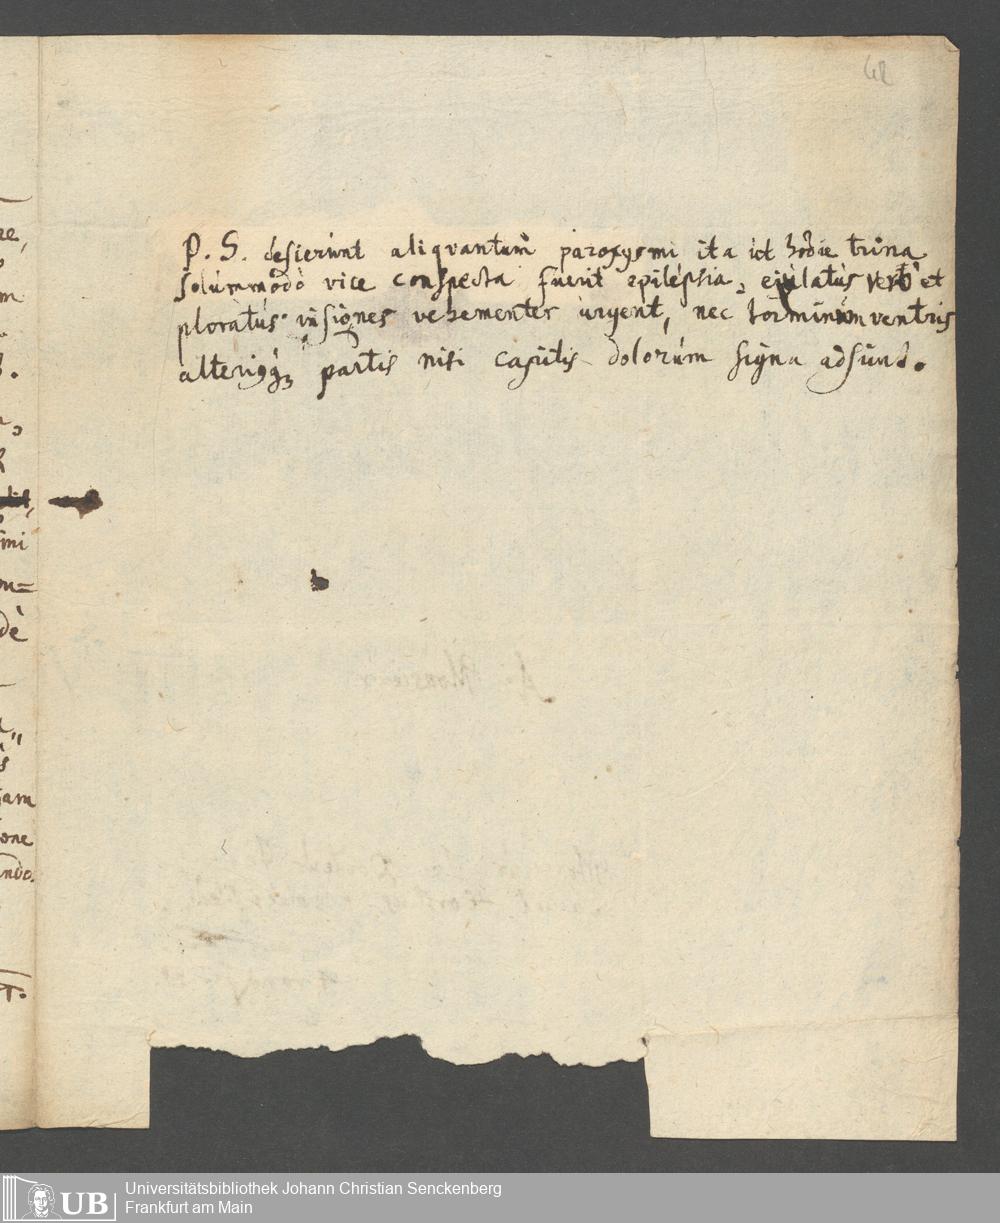 42
P. S. desierunt aliqvantum paroxysmi ita ut hodie trina
solummodò vice conspecta fuerit epilepsia, ejulatus verò et
ploratus visiones vehementer urgent, nec torminum ventris
alteriusq; partis nisi capitis dolorum signa adsunt.
re,
m
mi
on=
dè
s
iam
ione
ando.
T.
UB
Universitätsbibliothek Johann Christian Senckenberg
Frankfurt am Main